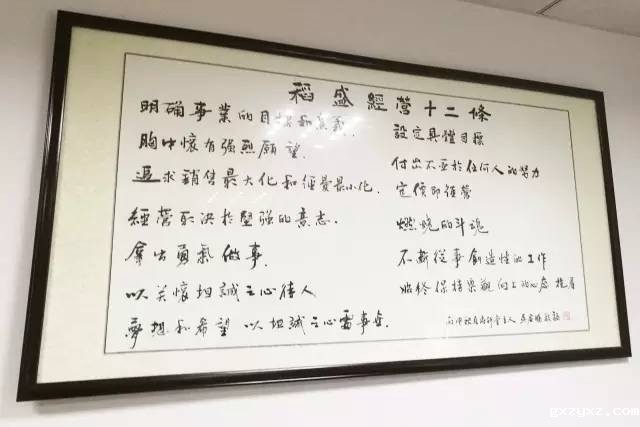 稻盛經營十二條
明确事業的目的和意義.
胸中懷有强烈願望.
追求銷售最大化和經費最小化.
經營取决於堅强的意志.
拿出勇氣做事.
以关懷坦誠之心待人
夢想和希望 以坦誠之心
設定具體目標
付出不亞於任何人的努力
定價即經營
燃燒的斗魂
不斷從事創造性的工作
始終保持樂觀向上的心態
gxzyxz.com